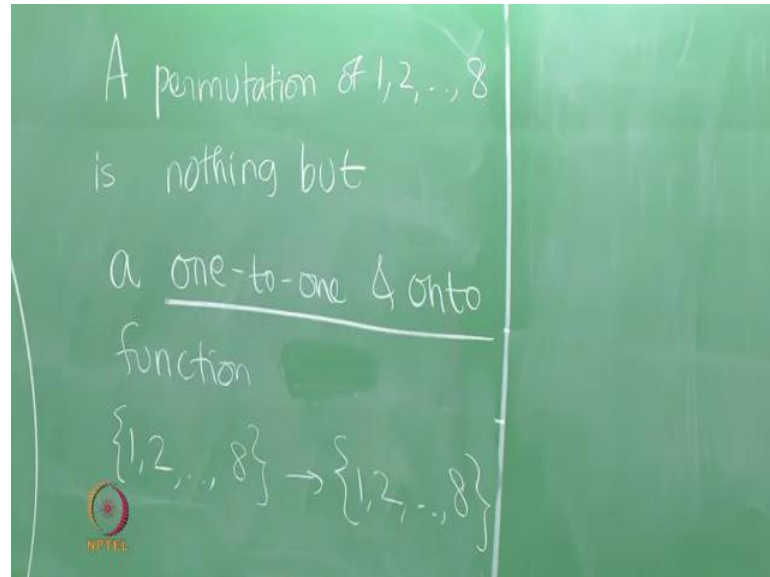 A permutation of 1, 2, .., 8
is nothing but
a one-to-one & onto
function
{1, 2, .., 8} → {1, 2, .., 8}
NPTEL